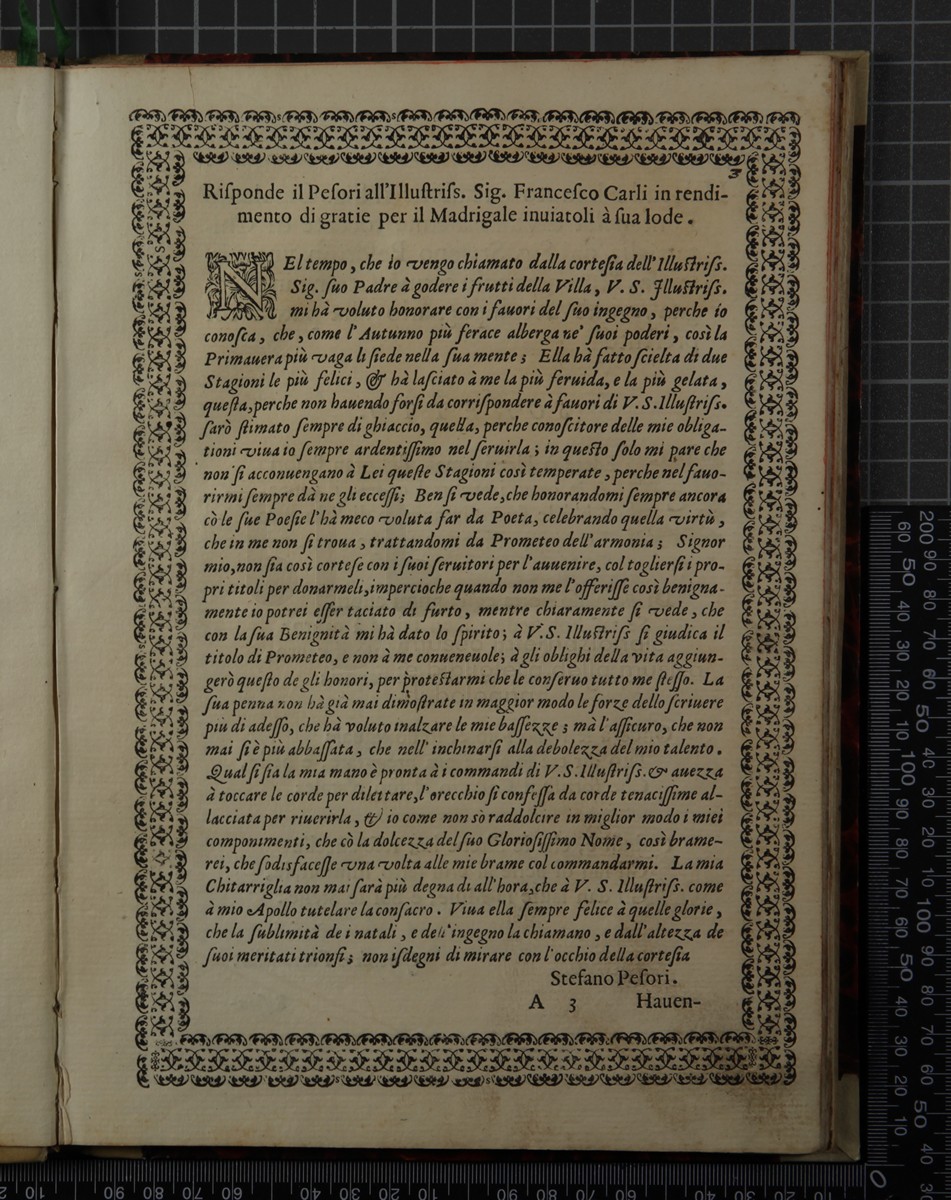 3
Risponde il Pesori all'Illustriss. Sig. Francesco Carli in rendi-
mento di gratie per il Madrigale inuiatoli à sua lode.
NEl tempo, che io vengo chiamato dalla cortesia dell'Illustriss.
Sig. suo Padre à godere i frutti della Villa, V. S. Illustriss.
mi hà voluto honorare con i fauori del suo ingegno, perche io
conosca, che, come l'Autunno più ferace alberga ne' suoi poderi, così la
Primauera più vaga li siede nella sua mente; Ella hà fatto scielta di due
Stagioni le più felici, & hà lasciato à me la più feruida, e la più gelata,
questa, perche non hauendo forsi da corrispondere à fauori di V.S.Illustriss.
sarò stimato sempre di ghiaccio, quella, perche conoscitore delle mie obliga-
tioni viua io sempre ardentissimo nel seruirla; in questo solo mi pare che
non si acconuengano à Lei queste Stagioni così temperate, perche nel fauo-
rirmi sempre dà ne gli eccessi; Ben si vede, che honorandomi sempre ancora
cò le sue Poesie l'hà meco voluta far da Poeta, celebrando quella virtù,
che in me non si troua, trattandomi da Prometeo dell'armonia; Signor
mio, non sia così cortese con i suoi seruitori per l'auuenire, col togliersi i pro-
pri titoli per donarmeli, impercioche quando non me l'offerisse così benigna-
mente io potrei esser taciato di furto, mentre chiaramente si vede, che
con la sua Benignità mi hà dato lo spirito; à V.S. Illustriss si giudica il
titolo di Prometeo, e non à me conueneuole; à gli oblighi della vita aggiun-
gerò questo de gli honori, per protestarmi che le conseruo tutto me stesso. La
sua penna non hà già mai dimostrate in maggior modo le forze dello scriuere
più di adesso, che hà voluto inalzare le mie bassezze; mà l'assicuro, che non
mai si è più abbassata, che nell'inchinarsi alla debolezza del mio talento.
Qual si sia la mia mano è pronta à i commandi di V.S.Illustriss. & auezza
à toccare le corde per dilettare, l'orecchio si confessa da corde tenacissime al-
lacciata per riuerirla, & io come non sò raddolcire in miglior modo i miei
componimenti, che cò la dolcezza del suo Gloriosissimo Nome, così brame-
rei, che sodisfacesse vna volta alle mie brame col commandarmi. La mia
Chitarriglia non mai sarà più degna di all'hora, che à V. S. Illustriss. come
à mio Apollo tutelare la consacro. Viua ella sempre felice à quelle glorie,
che la sublimità de i natali, e dell'ingegno la chiamano, e dall'altezza de
suoi meritati trionfi; non isdegni di mirare con l'occhio della cortesia
Stefano Pesori.
A 3 Hauen-